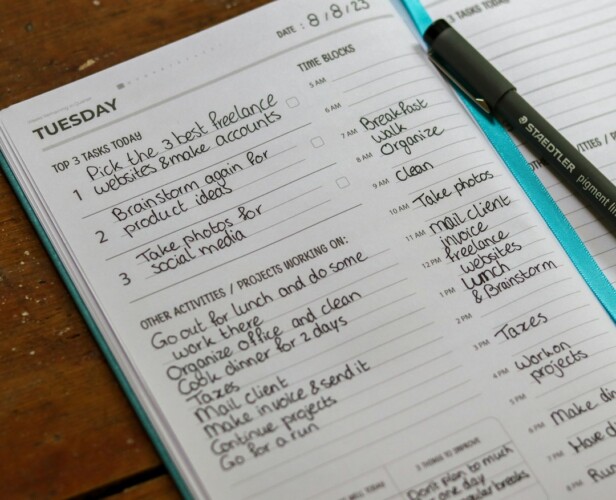 DATE: 8/8/23
TUESDAY
TOP 3 TASKS TODAY
1 Pick the 3 best freelance
websites & make accounts
2 Brainstorm again for
product ideas
3 Take photos for
social media
OTHER ACTIVITIES / PROJECTS WORKING ON:
Go out for lunch and do some
work there
Organize office and clean
Cook dinner for 2 days
Taxes
Mail client
Make invoice & send it
Continue projects
Go for a run
TIME BLOCKS
5 AM
6 AM
7 AM Breakfast
walk
8 AM Organize
9 AM Clean
10 AM Take photos
11 AM Mail client
invoice
12 PM freelance
websites
1 PM Lunch
& Brainstorm
2 PM
3 PM Taxes
4 PM Work on
projects
5 PM
6 PM Make din
7 PM Have di
8 PM Run
WELL TODAY
3 THINGS TO IMPROVE
Don't plan to much
one day
regular breaks
3 TASKS TODAY
ACTIVITIES / PRO
STAEDTLER
pigment lin